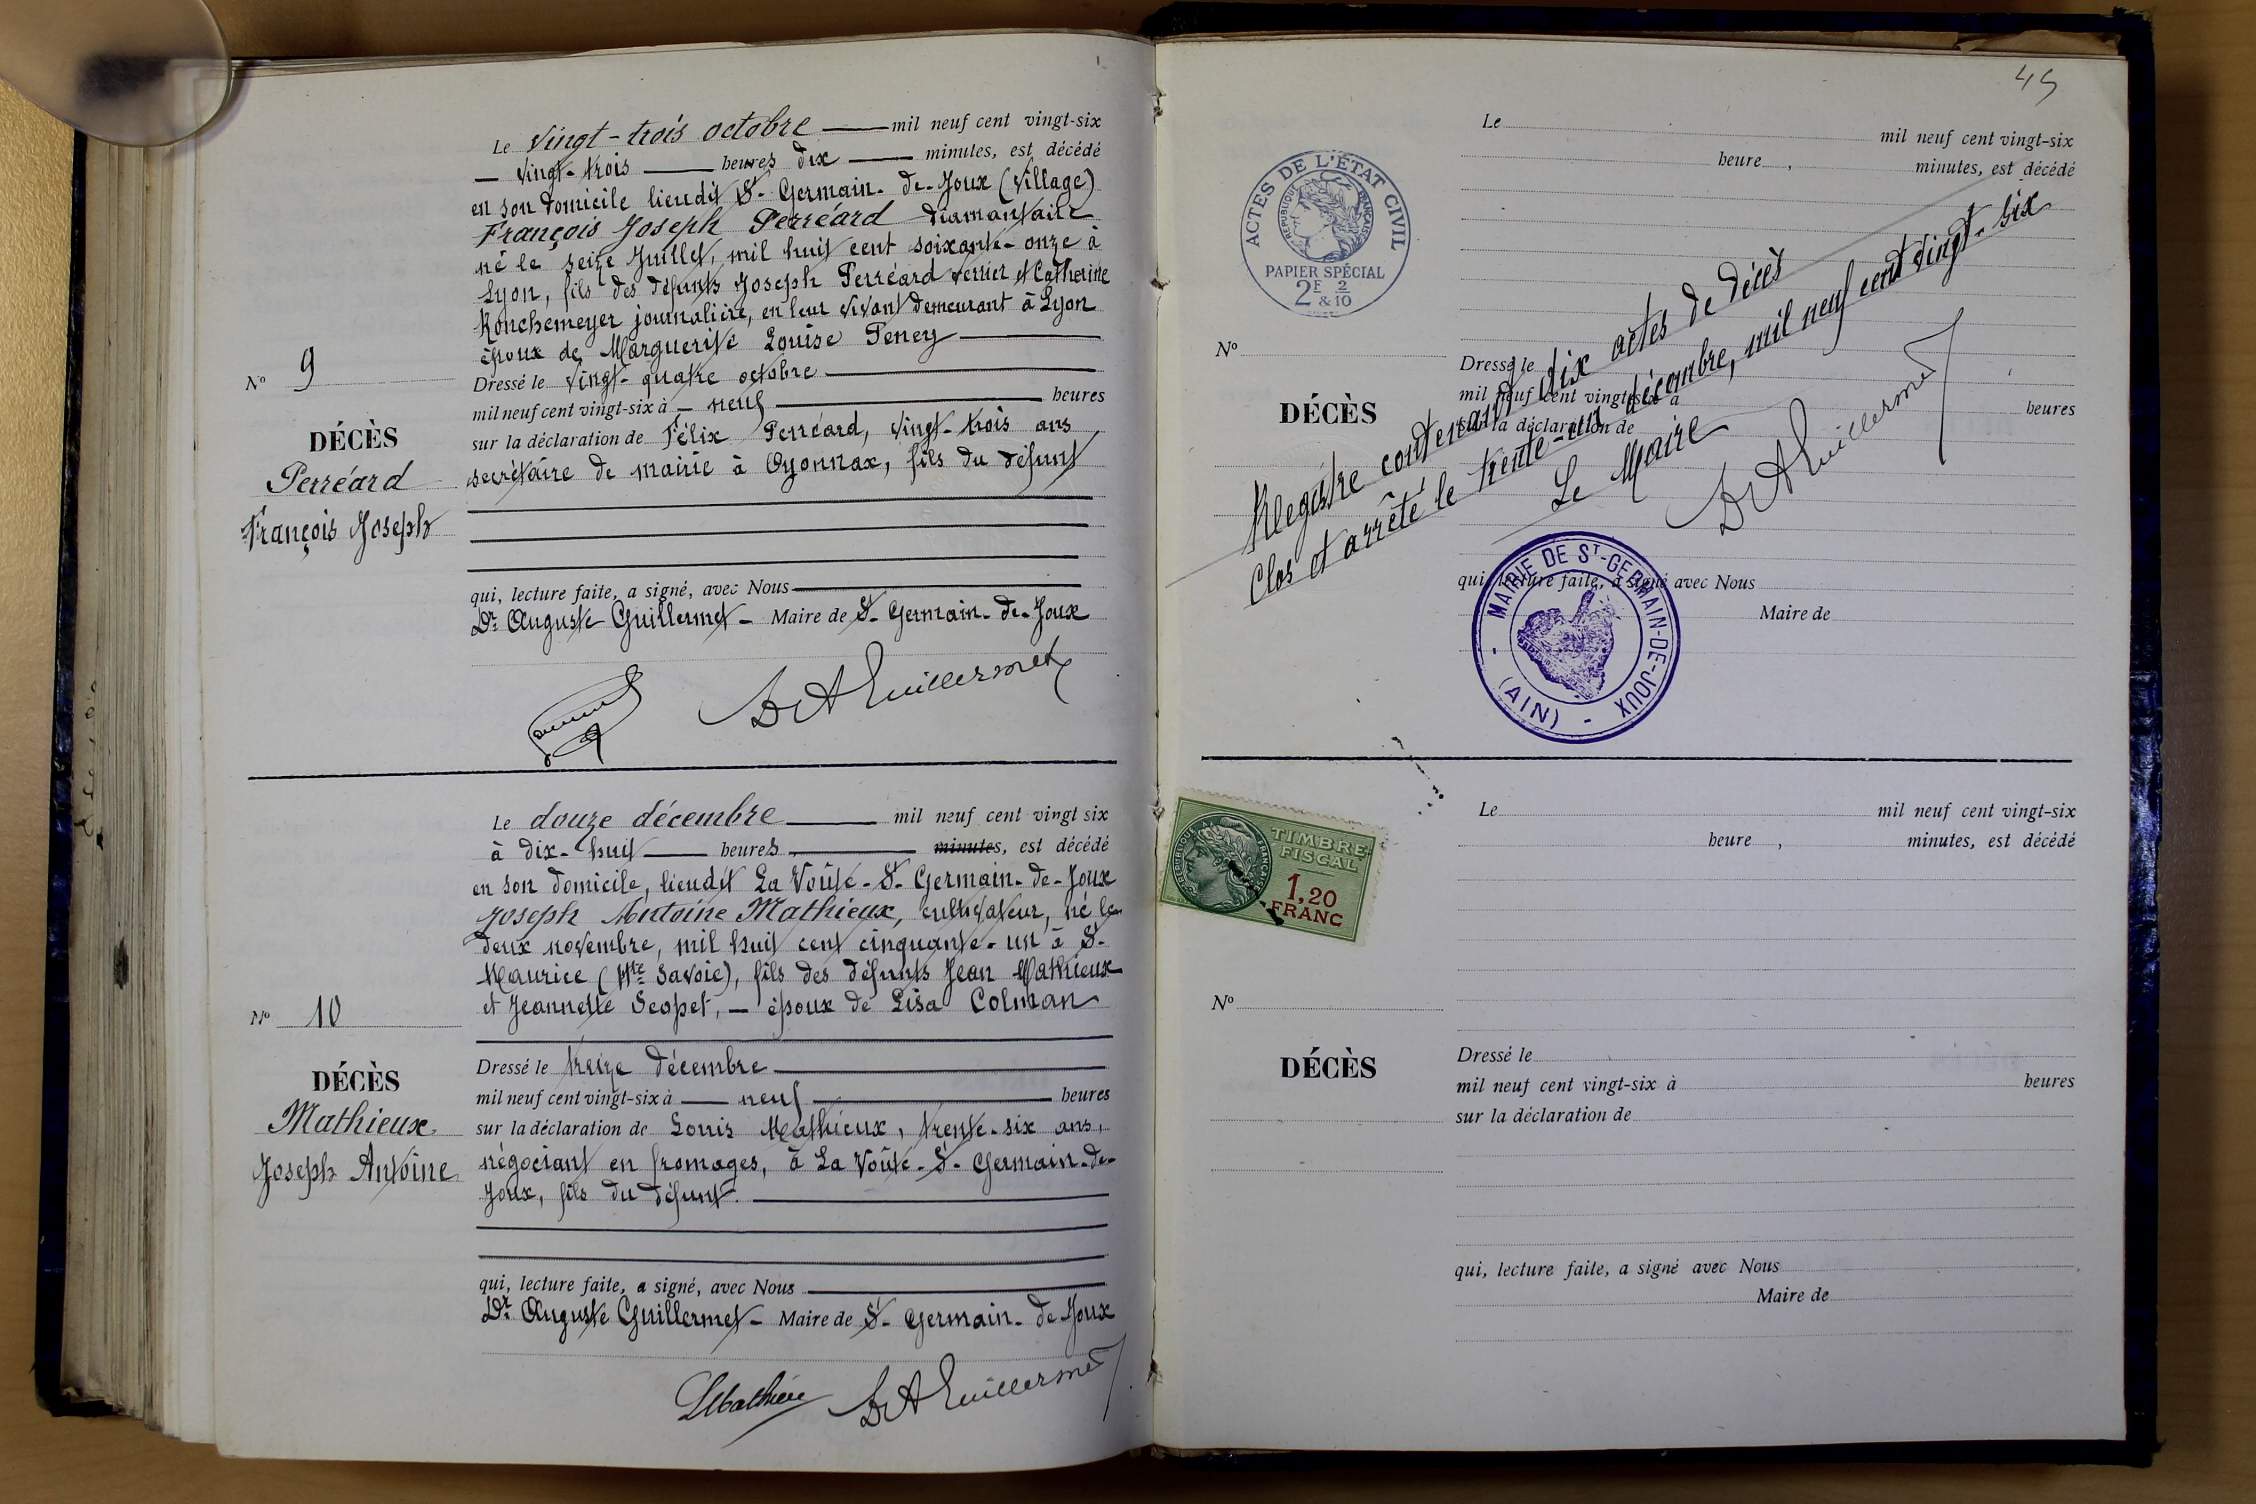 Le vingt-trois octobre mil neuf cent vingt-six
vingt-trois heures dix minutes, est décédé
en son domicile lieudit St-Germain-de-Joux (village)
François Joseph Perréard diamantaire
né le seize Juillet, mil huit cent soixante-onze à
Lyon, fils des défunts Joseph Perréard verrier et Catherine
Ronchemeyer journalière, en leur vivant demeurant à Lyon
époux de Marguerite Louise Peney
No 9
Dressé le vingt-quatre octobre
mil neuf cent vingt-six à neuf heures
DÉCÈS
sur la déclaration de Félix Perréard, vingt-trois ans
Perréard
secrétaire de mairie à Oyonnax, fils du défunt
François Joseph
qui, lecture faite, a signé, avec Nous
Dr Auguste Guillermet - Maire de St-Germain-de-Joux
Dr A Guillermet
Le douze décembre mil neuf cent vingt six
à dix-huit heures, minutes, est décédé
en son domicile, lieudit La Voûte-St-Germain-de-Joux
Joseph Antoine Mathieux, cultivateur, né le
deux novembre, mil huit cent cinquante-un à St-
Maurice (Hte Savoie), fils des défunts Jean Mathieux
et Jeannette Scopet, - époux de Lisa Colman
No 10
Dressé le treize décembre
DÉCÈS
mil neuf cent vingt-six à neuf heures
Mathieux
sur la déclaration de Louis Mathieux, trente-six ans,
Joseph Antoine
négociant en fromages, à La Voûte-St-Germain-de-
Joux, fils du défunt.
qui, lecture faite, a signé, avec Nous
Dr Auguste Guillermet - Maire de St-Germain-de Joux
LMathieu
Dr A Guillermet
45
Le mil neuf cent vingt-six
heure, minutes, est décédé
ACTES DE L'ÉTAT CIVIL
RÉPUBLIQUE FRANÇAISE
PAPIER SPÉCIAL
2F 2
& 10
No
Dressé le
mil neuf cent vingt-six à heures
DÉCÈS
sur la déclaration de
Registre contenant dix actes de décès
Clos et arrêté le trente-un décembre, mil neuf cent vingt-six
Le Maire
Dr A Guillermet
qui, lecture faite, a signé avec Nous
Maire de
- MAIRIE DE ST-GERMAIN-DE-JOUX -
(AIN)
RÉPUBLIQUE FRANÇAISE
TIMBRE
FISCAL
1,20
FRANC
Le mil neuf cent vingt-six
heure, minutes, est décédé
No
Dressé le
DÉCÈS
mil neuf cent vingt-six à heures
sur la déclaration de
qui, lecture faite, a signé avec Nous
Maire de